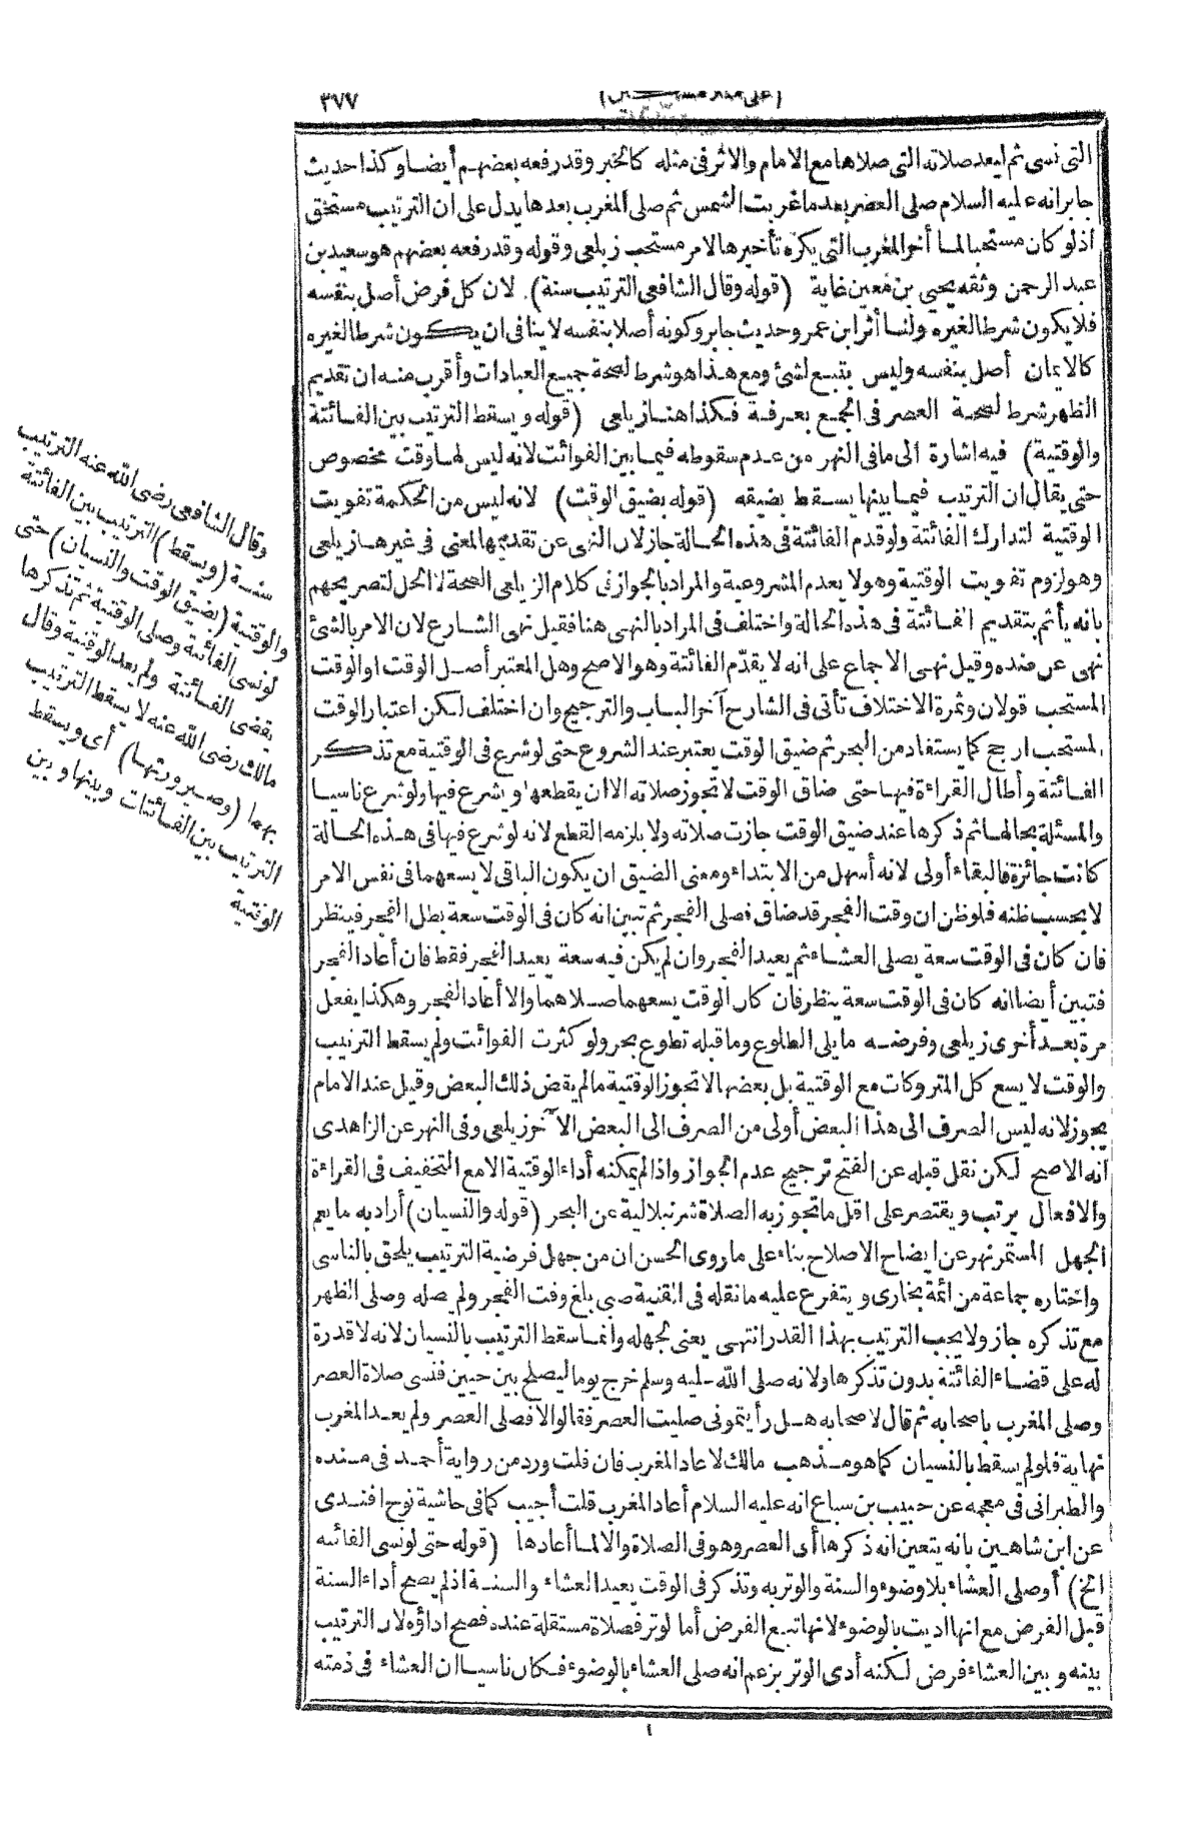 ٣٧٧
(على منلا مسكين)
التى نسى ثم ليعد صلاته التى صلاها مع الامام والاثر فى مثله كالخبر وقد رفعه بعضهم أيضا وكذا حديث
جابر انه عليه السلام صلى العصر بعد ما غربت الشمس ثم صلى المغرب بعدها يدل على ان الترتيب مستحق
اذ لو كان مستحبا لما أخر المغرب التى يكره تأخيرها لامر مستحب زيلعى وقوله وقد رفعه بعضهم هو سعيد بن
عبد الرحمن وثقه يحيى بن معين غاية (قوله وقال الشافعى الترتيب سنة) لان كل فرض أصل بنفسه
فلا يكون شرطا لغيره ولنا أثر ابن عمر وحديث جابر وكونه أصلا بنفسه لا ينافى ان يكون شرطا لغيره
كالايمان أصل بنفسه وليس بتبع لشئ ومع هذا هو شرط لصحة جميع العبادات وأقرب منه ان تقديم
الظهر شرط لصحة العصر فى الجمع بعرفة فكذا هنا زيلعى (قوله ويسقط الترتيب بين الفائتة
والوقتية) فيه اشارة الى ما فى النهر من عدم سقوطه فيما بين الفوائت لانه ليس لها وقت مخصوص
حتى يقال ان الترتيب فيما بينها يسقط بضيقه (قوله بضيق الوقت) لانه ليس من الحكمة تفويت
الوقتية لتدارك الفائتة ولو قدم الفائتة فى هذه الحالة جاز لان النهى عن تقديمها لمعنى فى غيرها زيلعى
وهو لزوم تفويت الوقتية وهو لا يعدم المشروعية والمراد بالجواز فى كلام الزيلعى الصحة لا الحل لتصريحهم
بانه يأثم بتقديم الفائتة فى هذه الحالة واختلف فى المراد بالنهى هنا فقيل نهى الشارع لان الامر بالشئ
نهى عن ضده وقيل نهى الاجماع على انه لا يقدّم الفائتة وهو الاصح وهل المعتبر أصل الوقت او الوقت
المستحب قولان وثمرة الاختلاف تأتى فى الشارح آخر الباب والترجيح وان اختلف لكن اعتبار الوقت
المستحب ارجح كما يستفاد من البحر ثم ضيق الوقت يعتبر عند الشروع حتى لو شرع فى الوقتية مع تذكر
الفائتة وأطال القراءة فيها حتى ضاق الوقت لا تجوز صلاته الا ان يقطعها ويشرع فيها ولو شرع ناسيا
والمسئلة بحالها ثم ذكرها عند ضيق الوقت جازت صلاته ولا يلزمه القطع لانه لو شرع فيها فى هذه الحالة
كانت جائزة فالبقاء أولى لانه أسهل من الابتداء ومعنى الضيق ان يكون الباقى لا يسعهما فى نفس الامر
لا بحسب ظنه فلو ظن ان وقت الفجر قد ضاق فصلى الفجر ثم تبين انه كان فى الوقت سعة بطل الفجر فينظر
فان كان فى الوقت سعة يصلى العشاء ثم يعيد الفجر وان لم يكن فيه سعة يعيد الفجر فقط فان أعاد الفجر
فتبين أيضا انه كان فى الوقت سعة ينظر فان كان الوقت يسعهما صلاهما والا أعاد الفجر وهكذا يفعل
مرة بعد أخرى زيلعى وفرضه ما يلى الطلوع وما قبله تطوع بحر ولو كثرت الفوائت ولم يسقط الترتيب
والوقت لا يسع كل المتروكات مع الوقتية بل بعضها لا تجوز الوقتية ما لم يقض ذلك البعض وقيل عند الامام
يجوز لانه ليس الصرف الى هذا البعض أولى من الصرف الى البعض الآخر زيلعى وفى النهر عن الزاهدى
انه الاصح لكن نقل قبله عن الفتح ترجيح عدم الجواز واذا لم يمكنه أداء الوقتية الا مع التخفيف فى القراءة
والافعال يرتب ويقتصر على اقل ما تجوز به الصلاة شرنبلالية عن البحر (قوله والنسيان) أراد به ما يعم
الجهل المستمر نهر عن ايضاح الاصلاح بناء على ما روى الحسن ان من جهل فرضية الترتيب يلحق بالناسى
واختاره جماعة من ائمة بخارى ويتفرع عليه ما نقله فى القنية صبى بلغ وقت الفجر ولم يصله وصلى الظهر
مع تذكره جاز ولا يجب الترتيب بهذا القدر انتهى يعنى لجهله وانما سقط الترتيب بالنسيان لانه لا قدرة
له على قضاء الفائتة بدون تذكرها ولانه صلى الله عليه وسلم خرج يوما ليصلح بين حيين فنسى صلاة العصر
وصلى المغرب باصحابه ثم قال لاصحابه هل رأيتمونى صليت العصر فقالوا لا فصلى العصر ولم يعد المغرب
نهاية فلو لم يسقط بالنسيان كما هو مذهب مالك لاعاد المغرب فان قلت ورد من رواية أحمد فى مسنده
والطبرانى فى معجمه عن حبيب بن سباع انه عليه السلام أعاد المغرب قلت أجيب كما فى حاشية نوح افندى
عن ابن شاهين بانه يتعين انه ذكرها أى العصر وهو فى الصلاة والا لما أعادها (قوله حتى لو نسى الفائتة
الخ) أو صلى العشاء بلا وضوء والسنة والوتر به وتذكر فى الوقت يعيد العشاء والسنة اذ لم يصح أداء السنة
قبل الفرض مع انها اديت بالوضوء لانها تبع الفرض أما لوتر فصلاة مستقلة عنده فصح اداؤه لان الترتيب
بينه وبين العشاء فرض لكنه أدى الوتر بزعم انه صلى العشاء بالوضوء فكان ناسيا ان العشاء فى ذمته
وقال الشافعى رضى الله عنه الترتيب
سنة (ويسقط) الترتيب بين الفائتة
والوقتية (بضيق الوقت والنسيان) حتى
لو نسى الفائتة وصلى الوقتية ثم تذكرها
يقضى الفائتة ولم يعد الوقتية وقال
مالك رضى الله عنه لا يسقط الترتيب
بهما (وصيرورتها) أى ويسقط
الترتيب بين الفائتات وبينها وبين
الوقتية